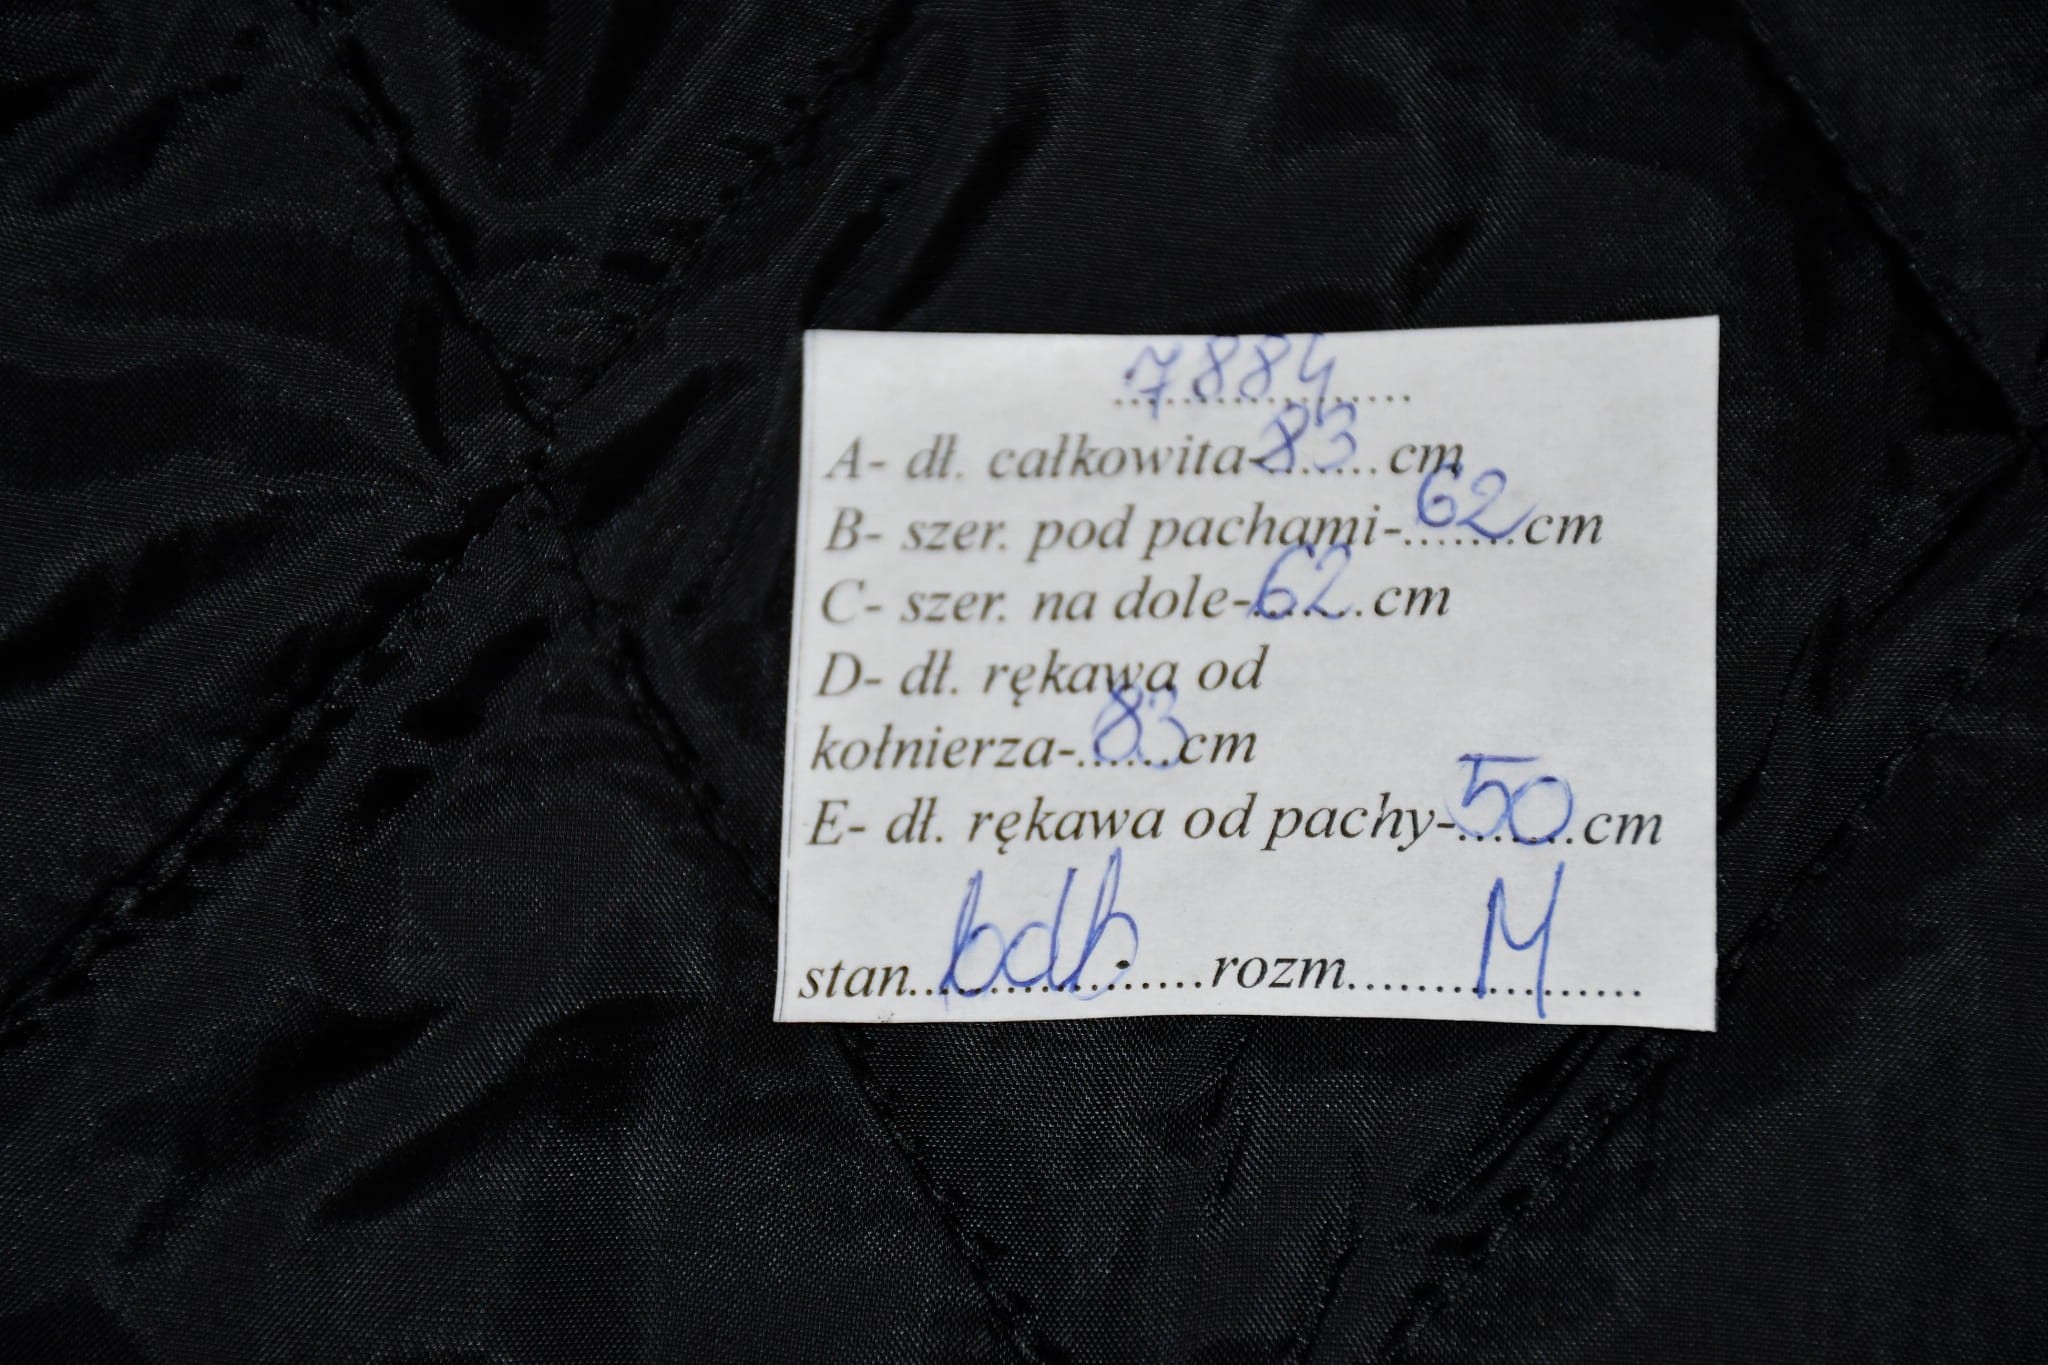 7884
A- dł. całkowita-83 cm
B- szer. pod pachami-62 cm
C- szer. na dole-62 cm
D- dł. rękawa od
kołnierza-83 cm
E- dł. rękawa od pachy-50 cm
stan..bdb......rozm......M......